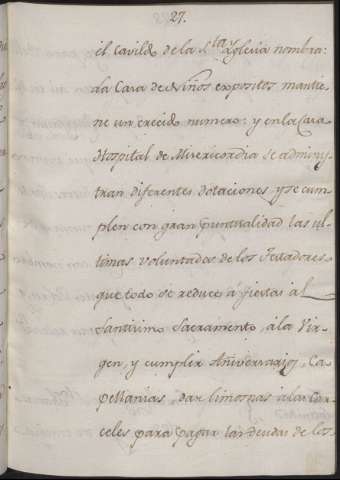 27.
el Cavild.º de la S.ta Yglesia nombra:
da Casa de Niños expositos mantie
ne un crecid.º numero: y en la Casa
Hospital de Misericordia se adminis
tran diferentes dotaciones y se cum-
plen con gran puntualidad las ul-
timas voluntades de los Testadores
que todo se reduce á fiestas al
Santisimo Sacramento, á la Vir-
gen, y cumplir Aniversarios, Ca
pellanias, dar limosnas á las Car-
celes para pagar las deudas de los